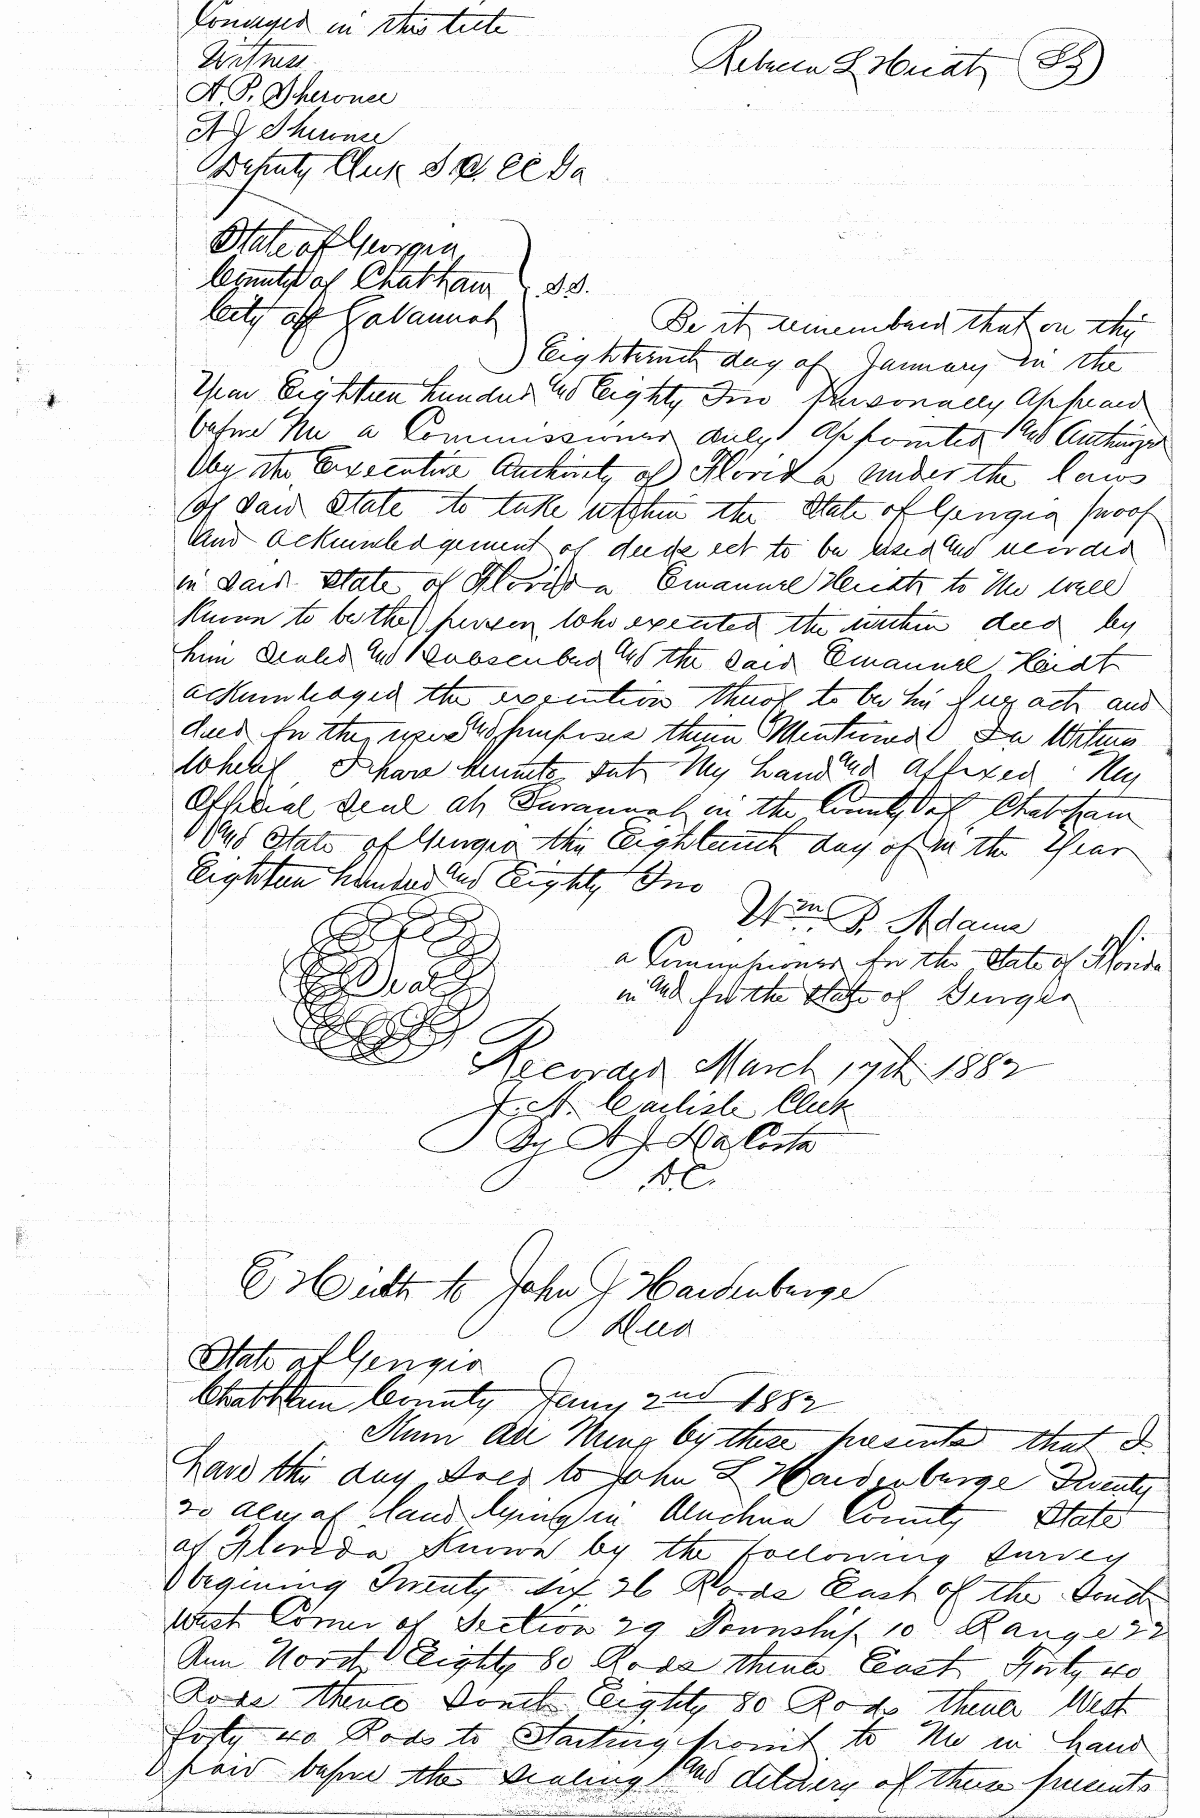 Conveyed in this title
Witness
Rebecca L Heidt (SS)
A. P. Sheronce
A J Sheronce
Deputy Clerk S C CC Ga
State of Georgia
County of Chatham S.S.
City of Savannah
Be it remembered that on this
Eighteenth day of January in the
Year Eighteen hundred and Eighty Two Personally Appeared
before Me a Commissioner duly Appointed and Authorized
by the Executive Authority of Florida under the laws
of Said State to take within the State of Georgia proof
and acknowledgement of deeds ect to be used and recorded
in Said State of Florida Emanuel Heidt to Me well
Known to be the person who executed the within deed by
him Sealed and Subscribed and the Said Emanuel Heidt
acknowledged the execution thereof to be his free act and
deed for the uses and purposes therein Mentioned In Witness
Whereof I have hereunto Set My hand and Affixed My
Official Seal at Savannah in the County of Chatham
and State of Georgia this Eighteenth day of in the Year
Eighteen hundred and Eighty Two
Wm P. Adams
Seal
a Commissioner for the State of Florida
in and for the State of Georgia
Recorded March 17th 1882
J. A. Carlisle Clerk
By A J DaCosta
D.C.
E Heidt to John J Hardenburge
Deed
State of Georgia
Chatham County Jany 2nd 1882
Know All Mens by these presents that I
have this day Sold to John L Hardenburge Twenty
20 acres of land lying in Alachua County State
of Florida Known by the following Survey
begining Twenty Six 26 Rods East of the South
West Corner of Section 29 Township 10 Range 22
Run North Eighty 80 Rods thence East Forty 40
Rods thence South Eighty 80 Rods thence West
forty 40 Rods to Starting point to Me in hand
paid before the Sealing and delivery of these presents